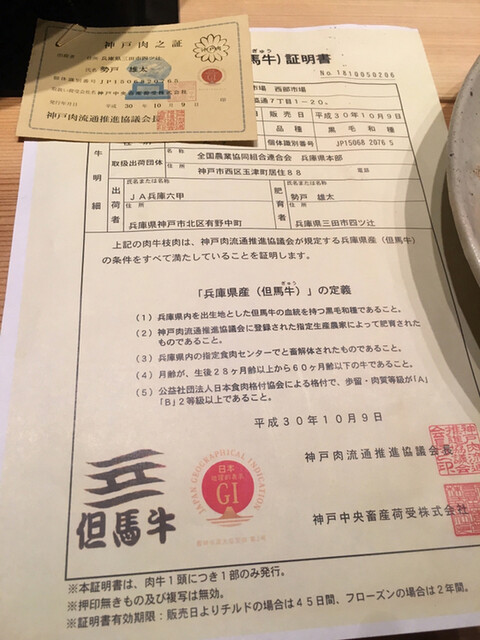 神戸肉之証
住所 兵庫県三田市四ツ辻
氏名 勢戸 雄太
個体識別番号 JP1506820765
発行年月日 平成 30年 10月 9日
神戸肉流通推進協議会
馬牛)証明書
ぎゅう
No.1810050206
市場 西部市場
通7丁目1-20。
販売日 平成30年10月9日
品種 黒毛和種
個体識別番号 JP15068 2076 5
牛明細
取扱出荷団体
名称 全国農業協同組合連合会 兵庫県本部
住所 神戸市西区玉津町居住88 電話
出荷者
氏名または名称
JA兵庫六甲
住所
兵庫県神戸市北区有野中町
肥育者
氏名または名称
勢戸 雄太
住所
兵庫県三田市四ツ辻
上記の肉牛枝肉は、神戸肉流通推進協議会が規定する兵庫県産(但馬牛)
の条件をすべて満たしていることを証明します。
ぎゅう
「兵庫県産(但馬牛)」の定義
(1)兵庫県内を出生地とした但馬牛の血統を持つ黒毛和種であること。
(2)神戸肉流通推進協議会に登録された指定生産農家によって肥育された
ものであること。
(3)兵庫県内の指定食肉センターでと畜解体されたものであること。
(4)月齢が、生後28ヶ月齢以上から60ヶ月齢以下の牛であること。
(5)公益社団法人日本食肉格付協会による格付で、歩留・肉質等級が「A」
「B」2等級以上であること。
平成30年10月9日
神戸肉流通推進協議会会長
神戸中央畜産荷受株式会社
但馬牛
JAPAN GEOGRAPHICAL INDICATION
日本
地理的表示
GI
※本証明書は、肉牛1頭につき1部のみ発行。
※押印無きもの及び複写は無効。
※証明書有効期限:販売日よりチルドの場合は45日間、フローズンの場合は2年間。